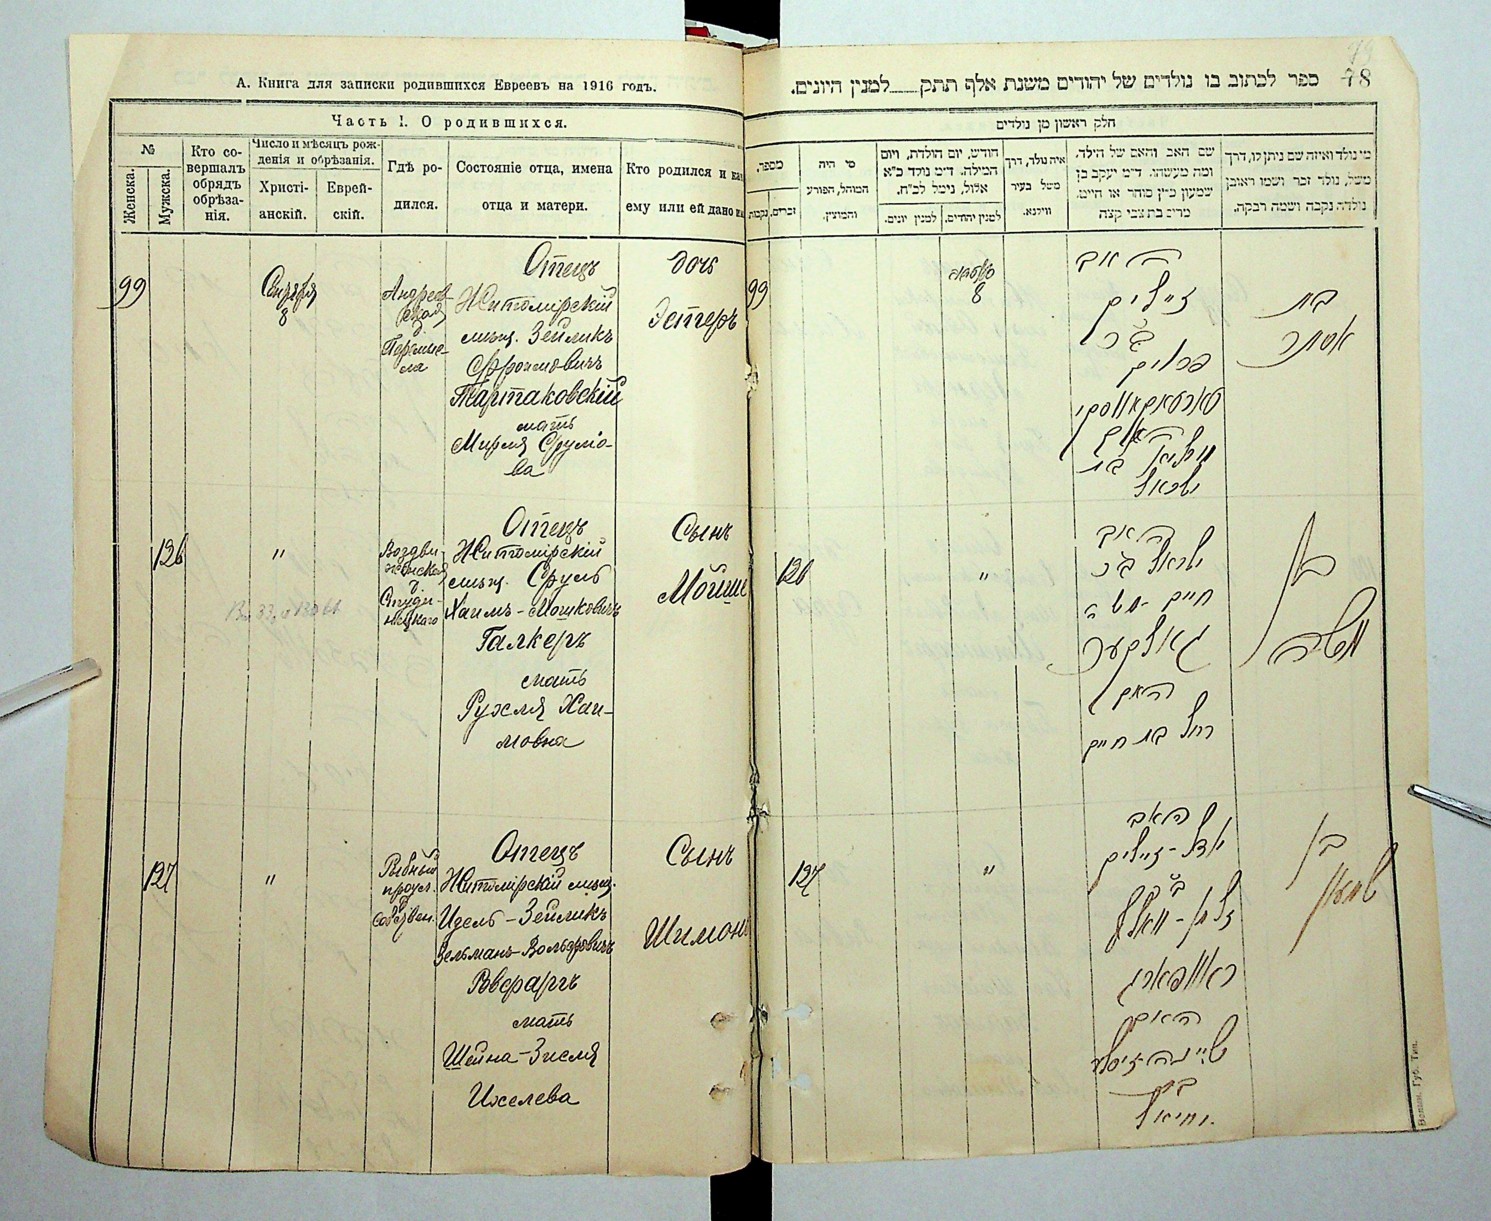 А. Книга для записки родившихся Евреевъ на 1916 годъ.
Часть 1. О родившихся.
№
Женска.
Мужска.
Кто со-
вершалъ
обрядъ
обрѣза-
нія.
Число и мѣсяцъ рож-
денія и обрѣзанія.
Христі-
анскій.
Еврей-
скій.
Гдѣ ро-
дился.
Состояніе отца, имена
отца и матери.
Кто родился и ка
ему или ей дано и
99
Сентября
8
Отецъ
Житомірскій
мѣщ. Зейликъ
Фроимовичъ
Тартаковскій
мать
Мирля Сруліо-
ва
дочь
Эстеръ
126
"
Воздви-
женская
Отецъ
Житомірскій
мѣщ. Сруль
Хаимъ-Мошковичъ
Галкеръ
мать
Рухля Хаи-
мовна
Сынъ
Мойше
127
"
Рыбный
Отецъ
Житомірскій мѣщ.
Идель-Зейликъ
Зельманъ-Вольфовичъ
мать
Шейна-Зисля
Ихелева
Сынъ
Шимонъ
48 ספר לכתוב בו נולדים של יהודים משנת אלף תתק___למנין היונים.
חלק ראשון מן נולדים
מספר,
זכרים,
נקבות
מי היה
המוהל, הפורע
והמוצץ.
חודש, יום הולדת, ויום
המילה. ד״מ נולד כ״א
אלול, נימל לכ״ח.
למנין יונים.
למנין יהודים.
איה נולד, דרך
משל בעיר
ווילנא.
שם האב והאם של הילד,
ומה מעשהו. ד״מ יעקב בן
שמעון כהן סוחר או חייט.
מרים בת צבי קצב
מי נולד ואיזה שם ניתן לו, דרך
משל, נולד זכר ושמו ראובן
נולדה נקבה ושמה רבקה.
99
8
האב
זייליק
ב״ר
פרוים
טארטאקאווסקי
האם
מירליא בת
ישראל
בת
אסתר
126
"
האב
ישראל ב״ר
חיים-משה
גאלקער
האם
רחל בת חיים
בן
משה
127
"
האב
אידל-זייליק
ב״ר
זלמן-וואלף
האם
שיינה-זיסל
בת
יחיאל
בן
שמעון
Волын. Губ. Тип.